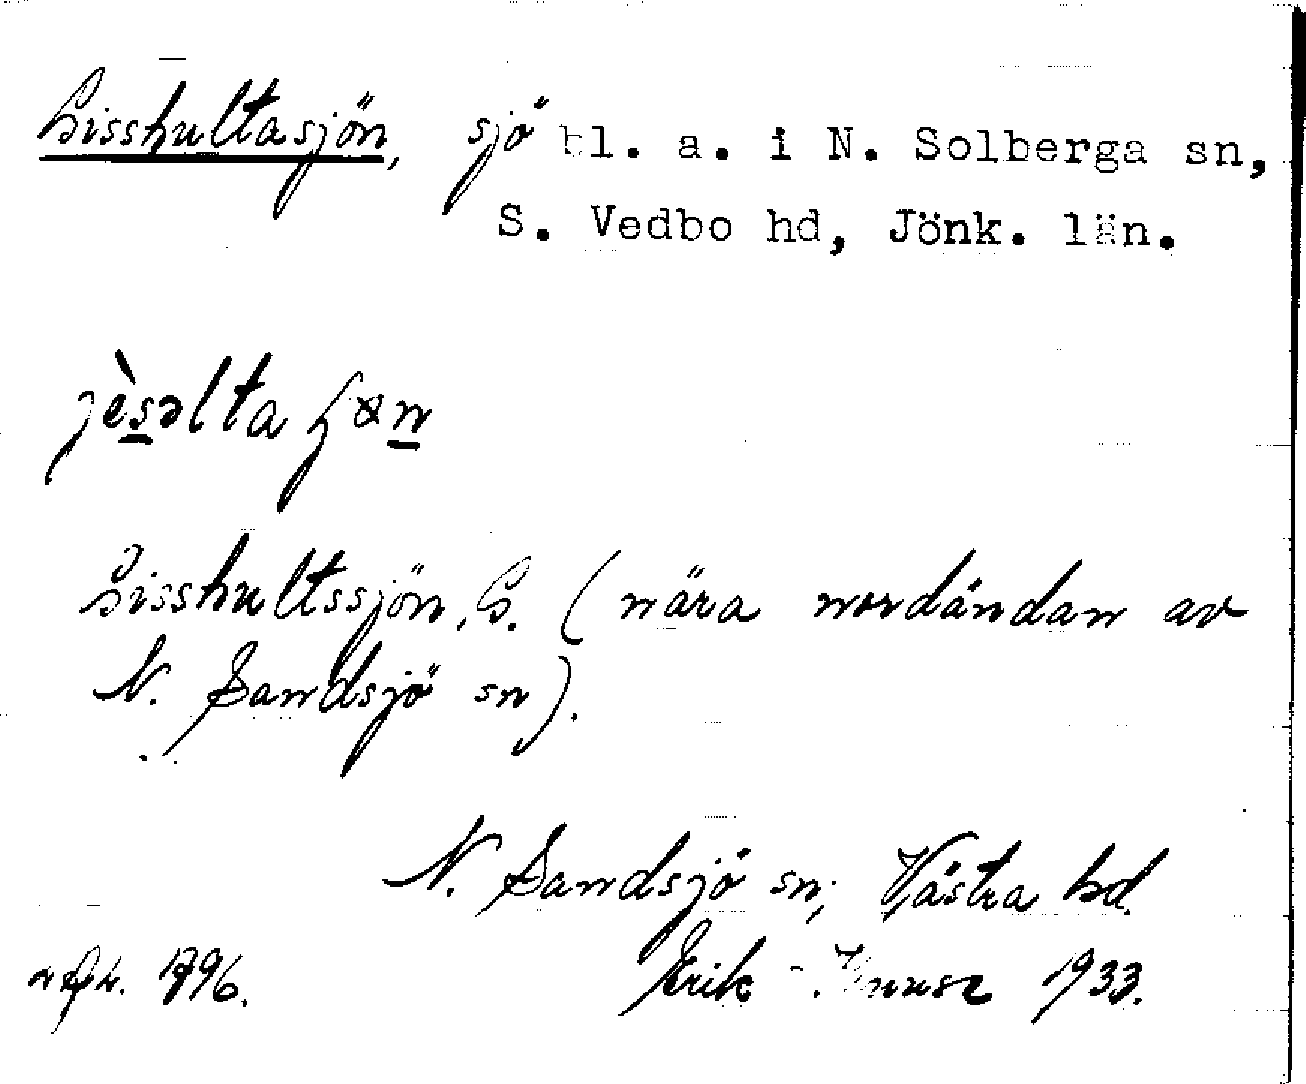 Gisshultasjön, sjö bl. a. i N. Solberga sn,
S. Vedbo hd, Jönk. län.
jèsəlta
Gisshultssjön, G. (nära nordändan av
N. Sandsjö sn).
N. Sandsjö sn, Västra hd.
Erik 1933.